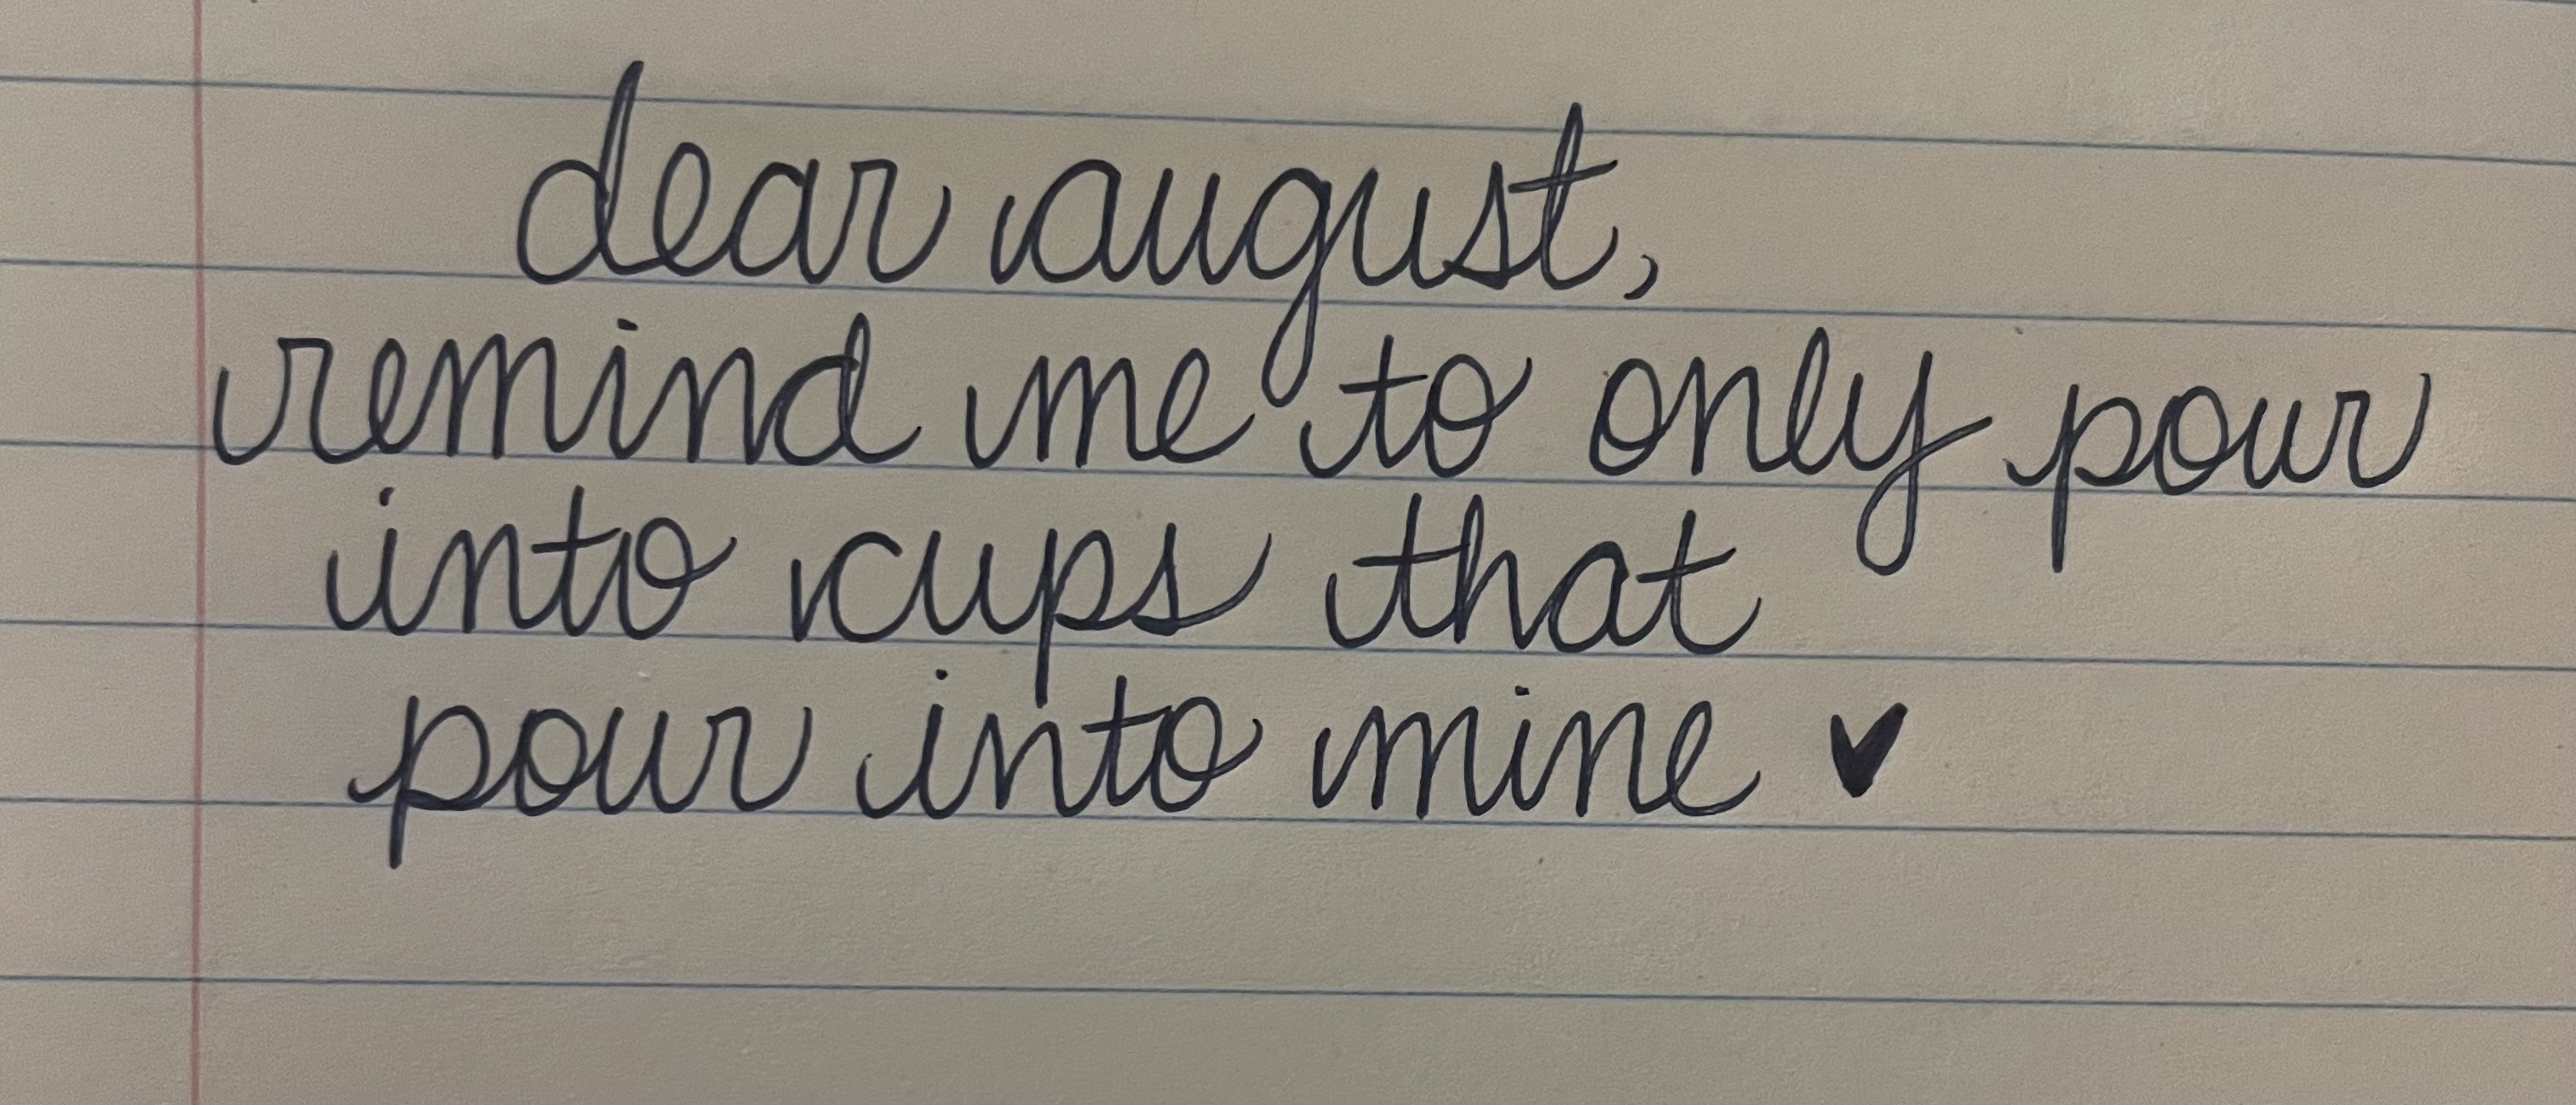 dear august,
remind me to only pour
into cups that
pour into mine ♥